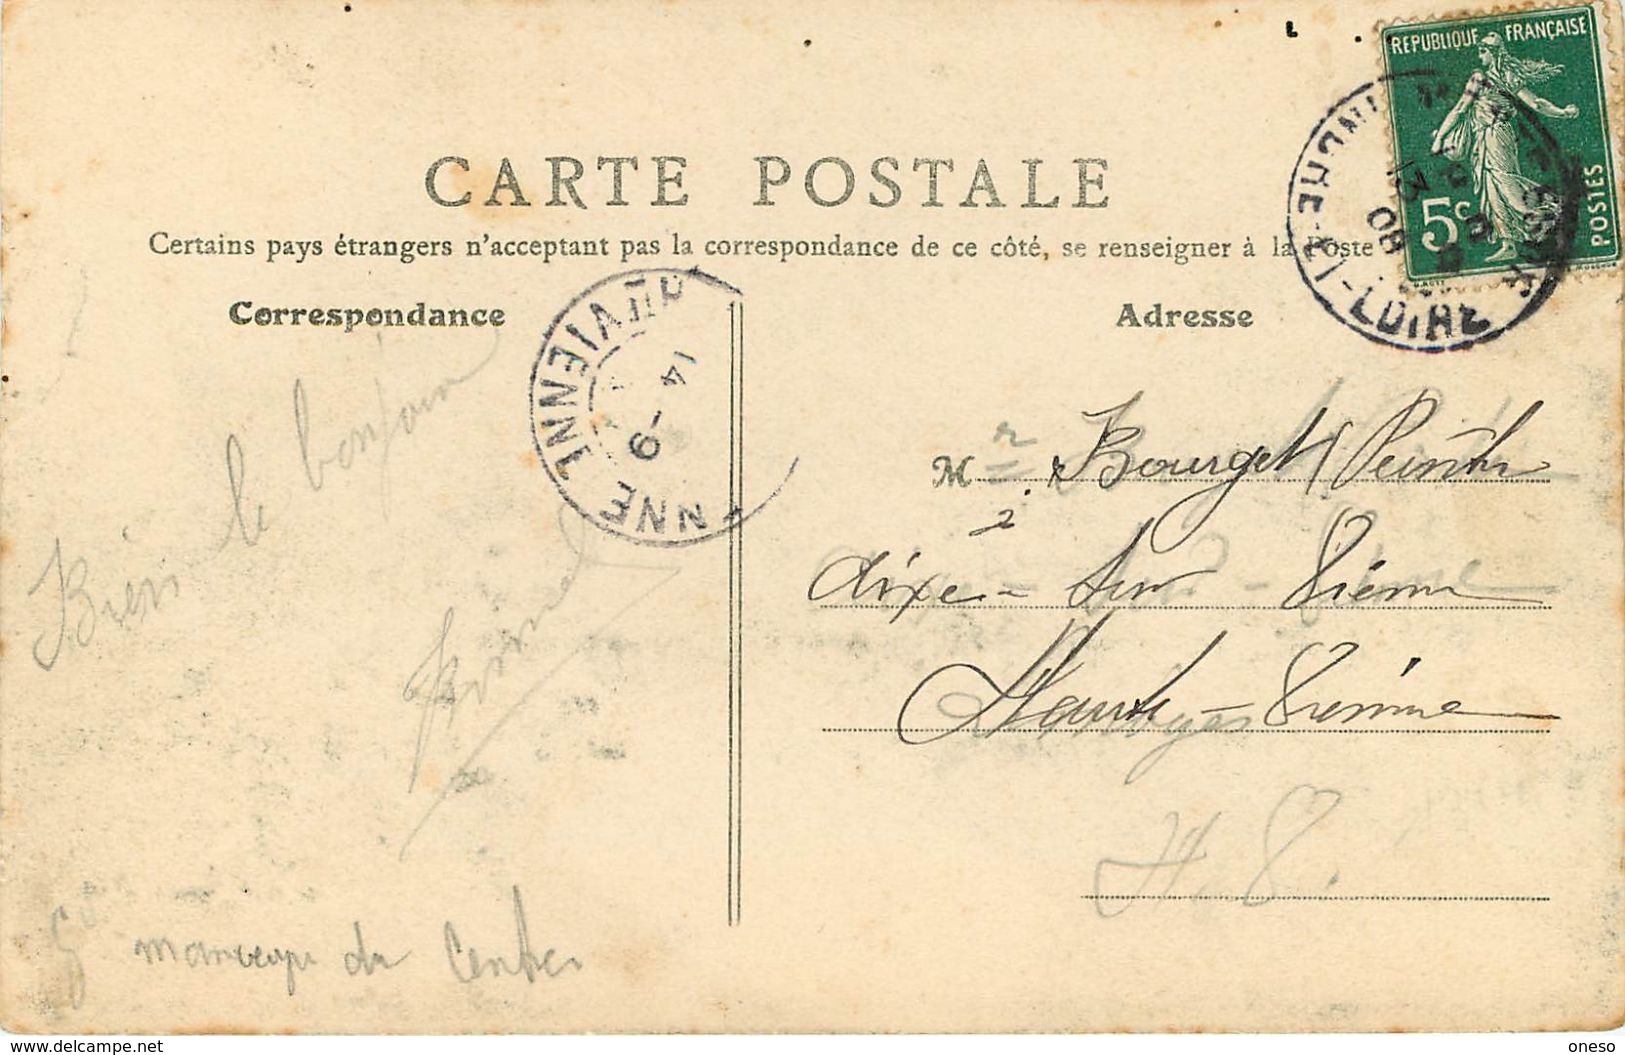 RÉPUBLIQUE FRANÇAISE
5c POSTES
CARTE POSTALE
Certains pays étrangers n'acceptant pas la correspondance de ce côté, se renseigner à la Poste
INDRE-&-LOIRE
13
08
Correspondance
Adresse
VIENNE
14 -9
Bien le bonjour
Mr Bourget Peintre
à
Aixe-sur-Vienne
Haute-Vienne
H. V.
du Centre
www.delcampe.net
oneso